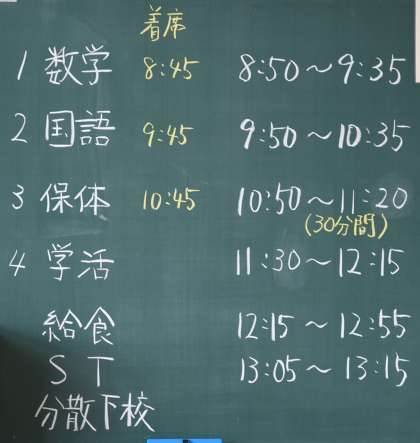 着席
1 数学 8:45 8:50～9:35
2 国語 9:45 9:50～10:35
3 保体 10:45 10:50～11:20
(30分間)
4 学活 11:30～12:15
給食 12:15～12:55
ST 13:05～13:15
分散下校